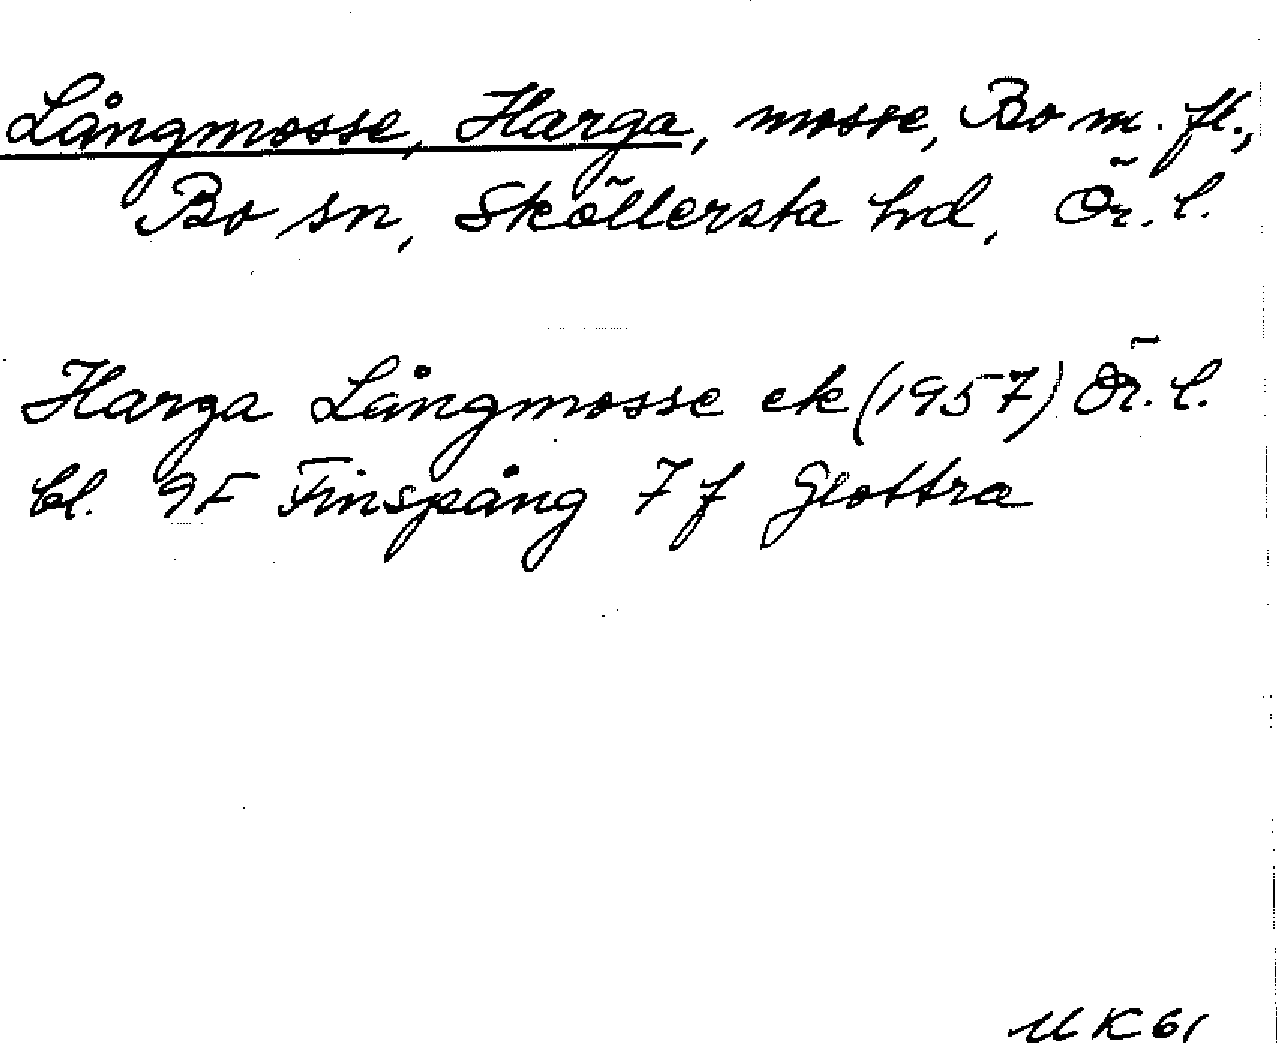 Långmosse, Harga, mosse, Bo m. fl.,
Bo sn, Sköllersta hd, Ör. l.
Harga Långmosse ek (1957) Ör. l.
bl. 9F Finspång 7 f Glottra
UK 61